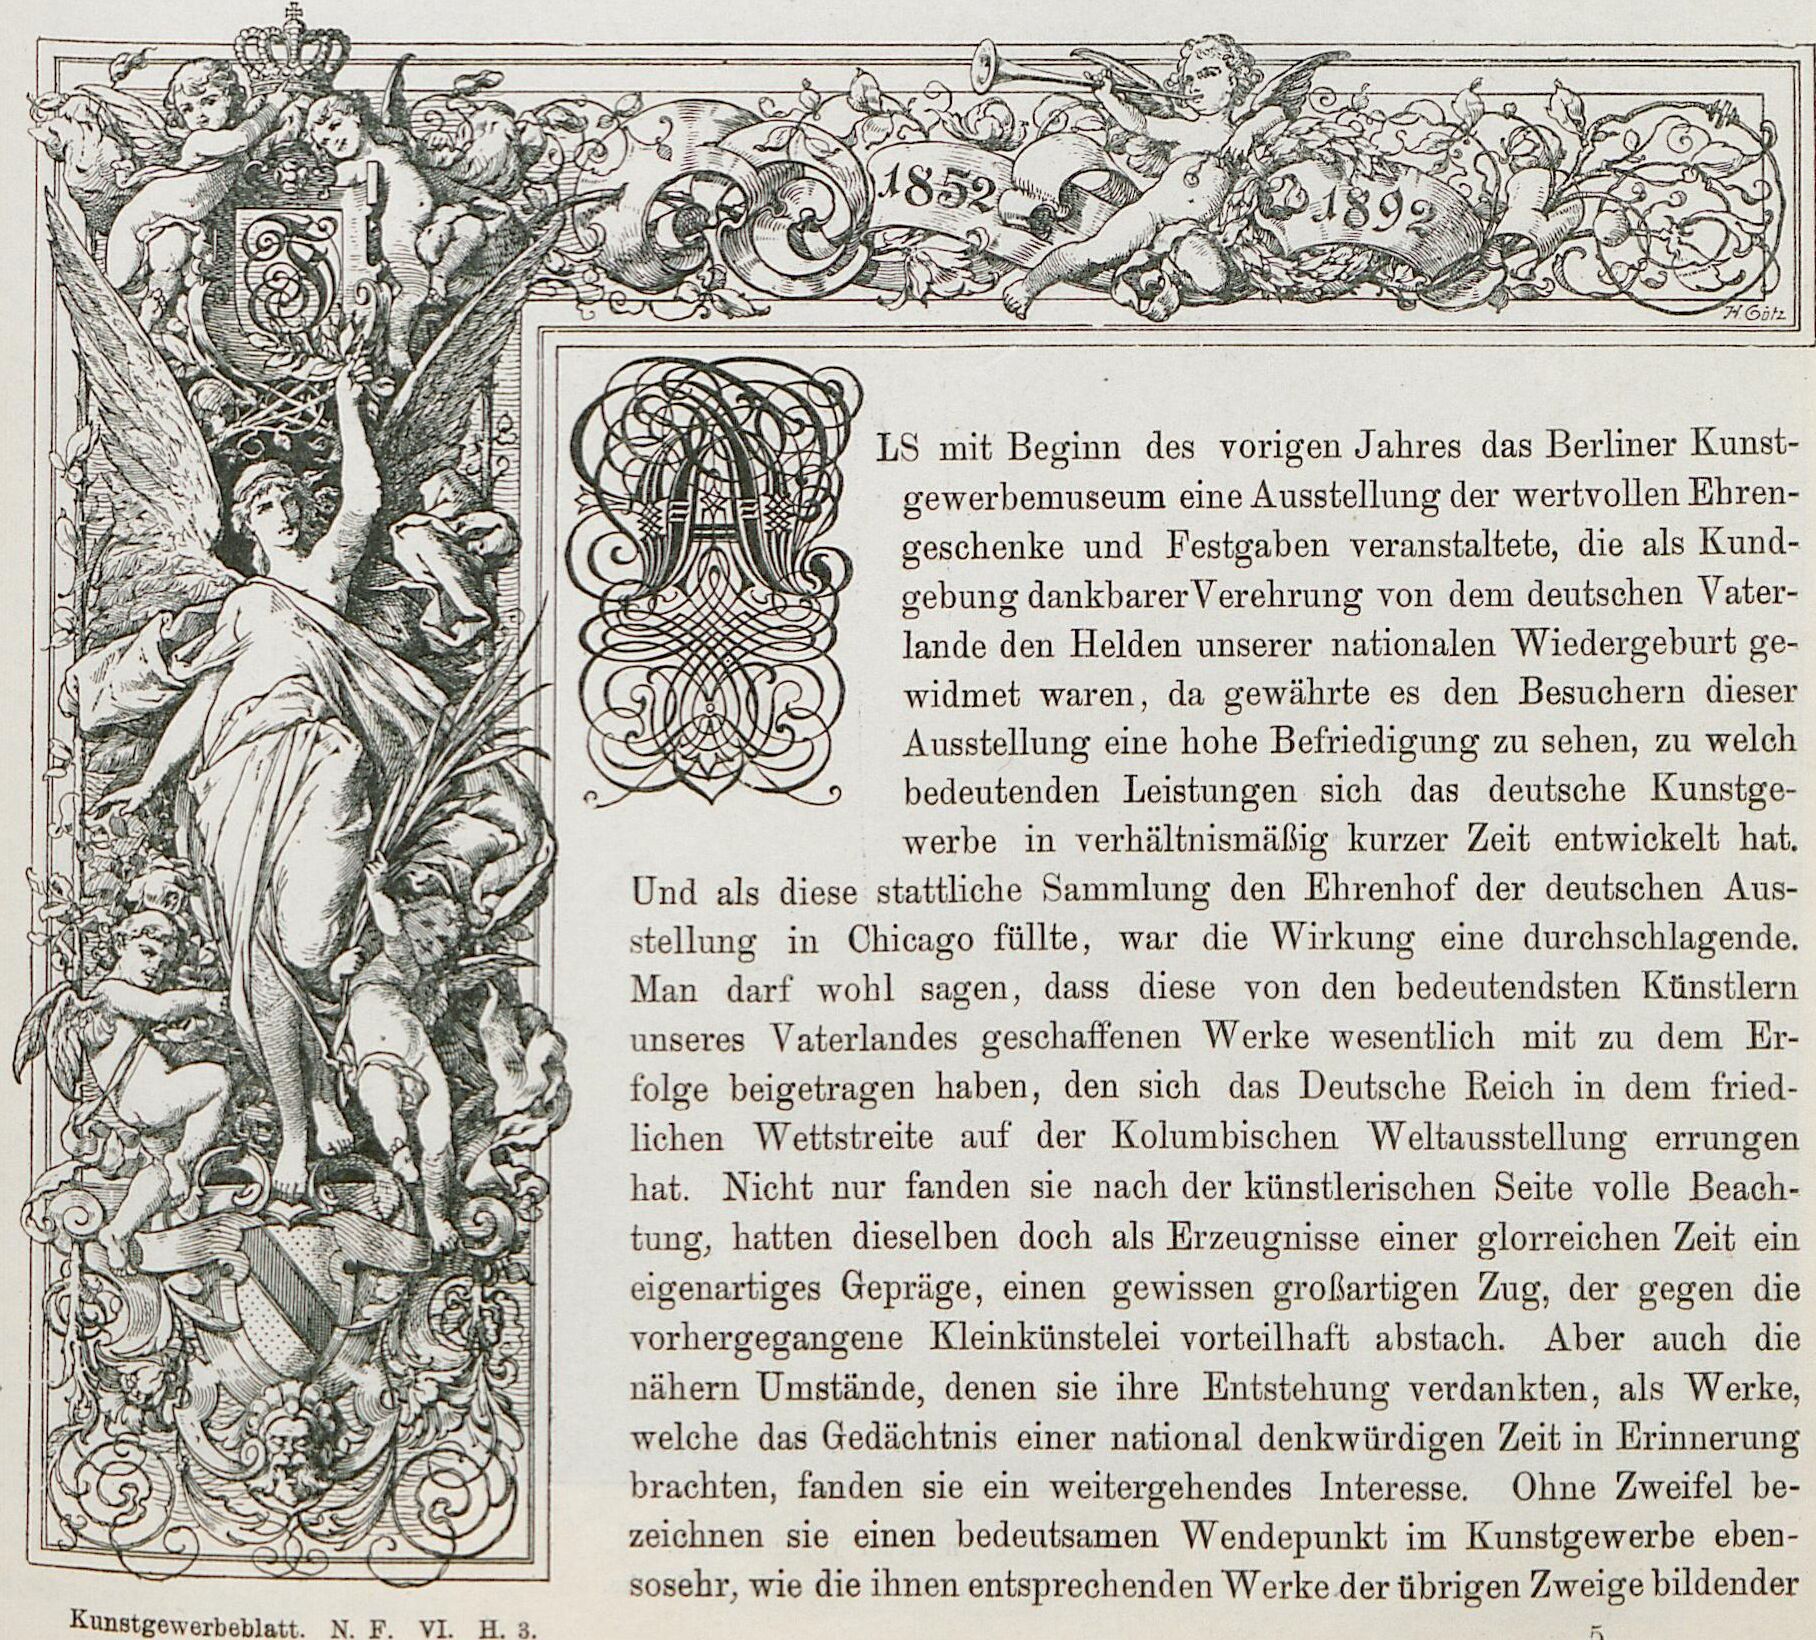 1852
1892
H. Götz
ALS mit Beginn des vorigen Jahres das Berliner Kunst-
gewerbemuseum eine Ausstellung der wertvollen Ehren-
geschenke und Festgaben veranstaltete, die als Kund-
gebung dankbarer Verehrung von dem deutschen Vater-
lande den Helden unserer nationalen Wiedergeburt ge-
widmet waren, da gewährte es den Besuchern dieser
Ausstellung eine hohe Befriedigung zu sehen, zu welch
bedeutenden Leistungen sich das deutsche Kunstge-
werbe in verhältnismäßig kurzer Zeit entwickelt hat.
Und als diese stattliche Sammlung den Ehrenhof der deutschen Aus-
stellung in Chicago füllte, war die Wirkung eine durchschlagende.
Man darf wohl sagen, dass diese von den bedeutendsten Künstlern
unseres Vaterlandes geschaffenen Werke wesentlich mit zu dem Er-
folge beigetragen haben, den sich das Deutsche Reich in dem fried-
lichen Wettstreite auf der Kolumbischen Weltausstellung errungen
hat. Nicht nur fanden sie nach der künstlerischen Seite volle Beach-
tung, hatten dieselben doch als Erzeugnisse einer glorreichen Zeit ein
eigenartiges Gepräge, einen gewissen großartigen Zug, der gegen die
vorhergegangene Kleinkünstelei vorteilhaft abstach. Aber auch die
nähern Umstände, denen sie ihre Entstehung verdankten, als Werke,
welche das Gedächtnis einer national denkwürdigen Zeit in Erinnerung
brachten, fanden sie ein weitergehendes Interesse. Ohne Zweifel be-
zeichnen sie einen bedeutsamen Wendepunkt im Kunstgewerbe eben-
sosehr, wie die ihnen entsprechenden Werke der übrigen Zweige bildender
Kunstgewerbeblatt. N. F. VI. H. 3.
5